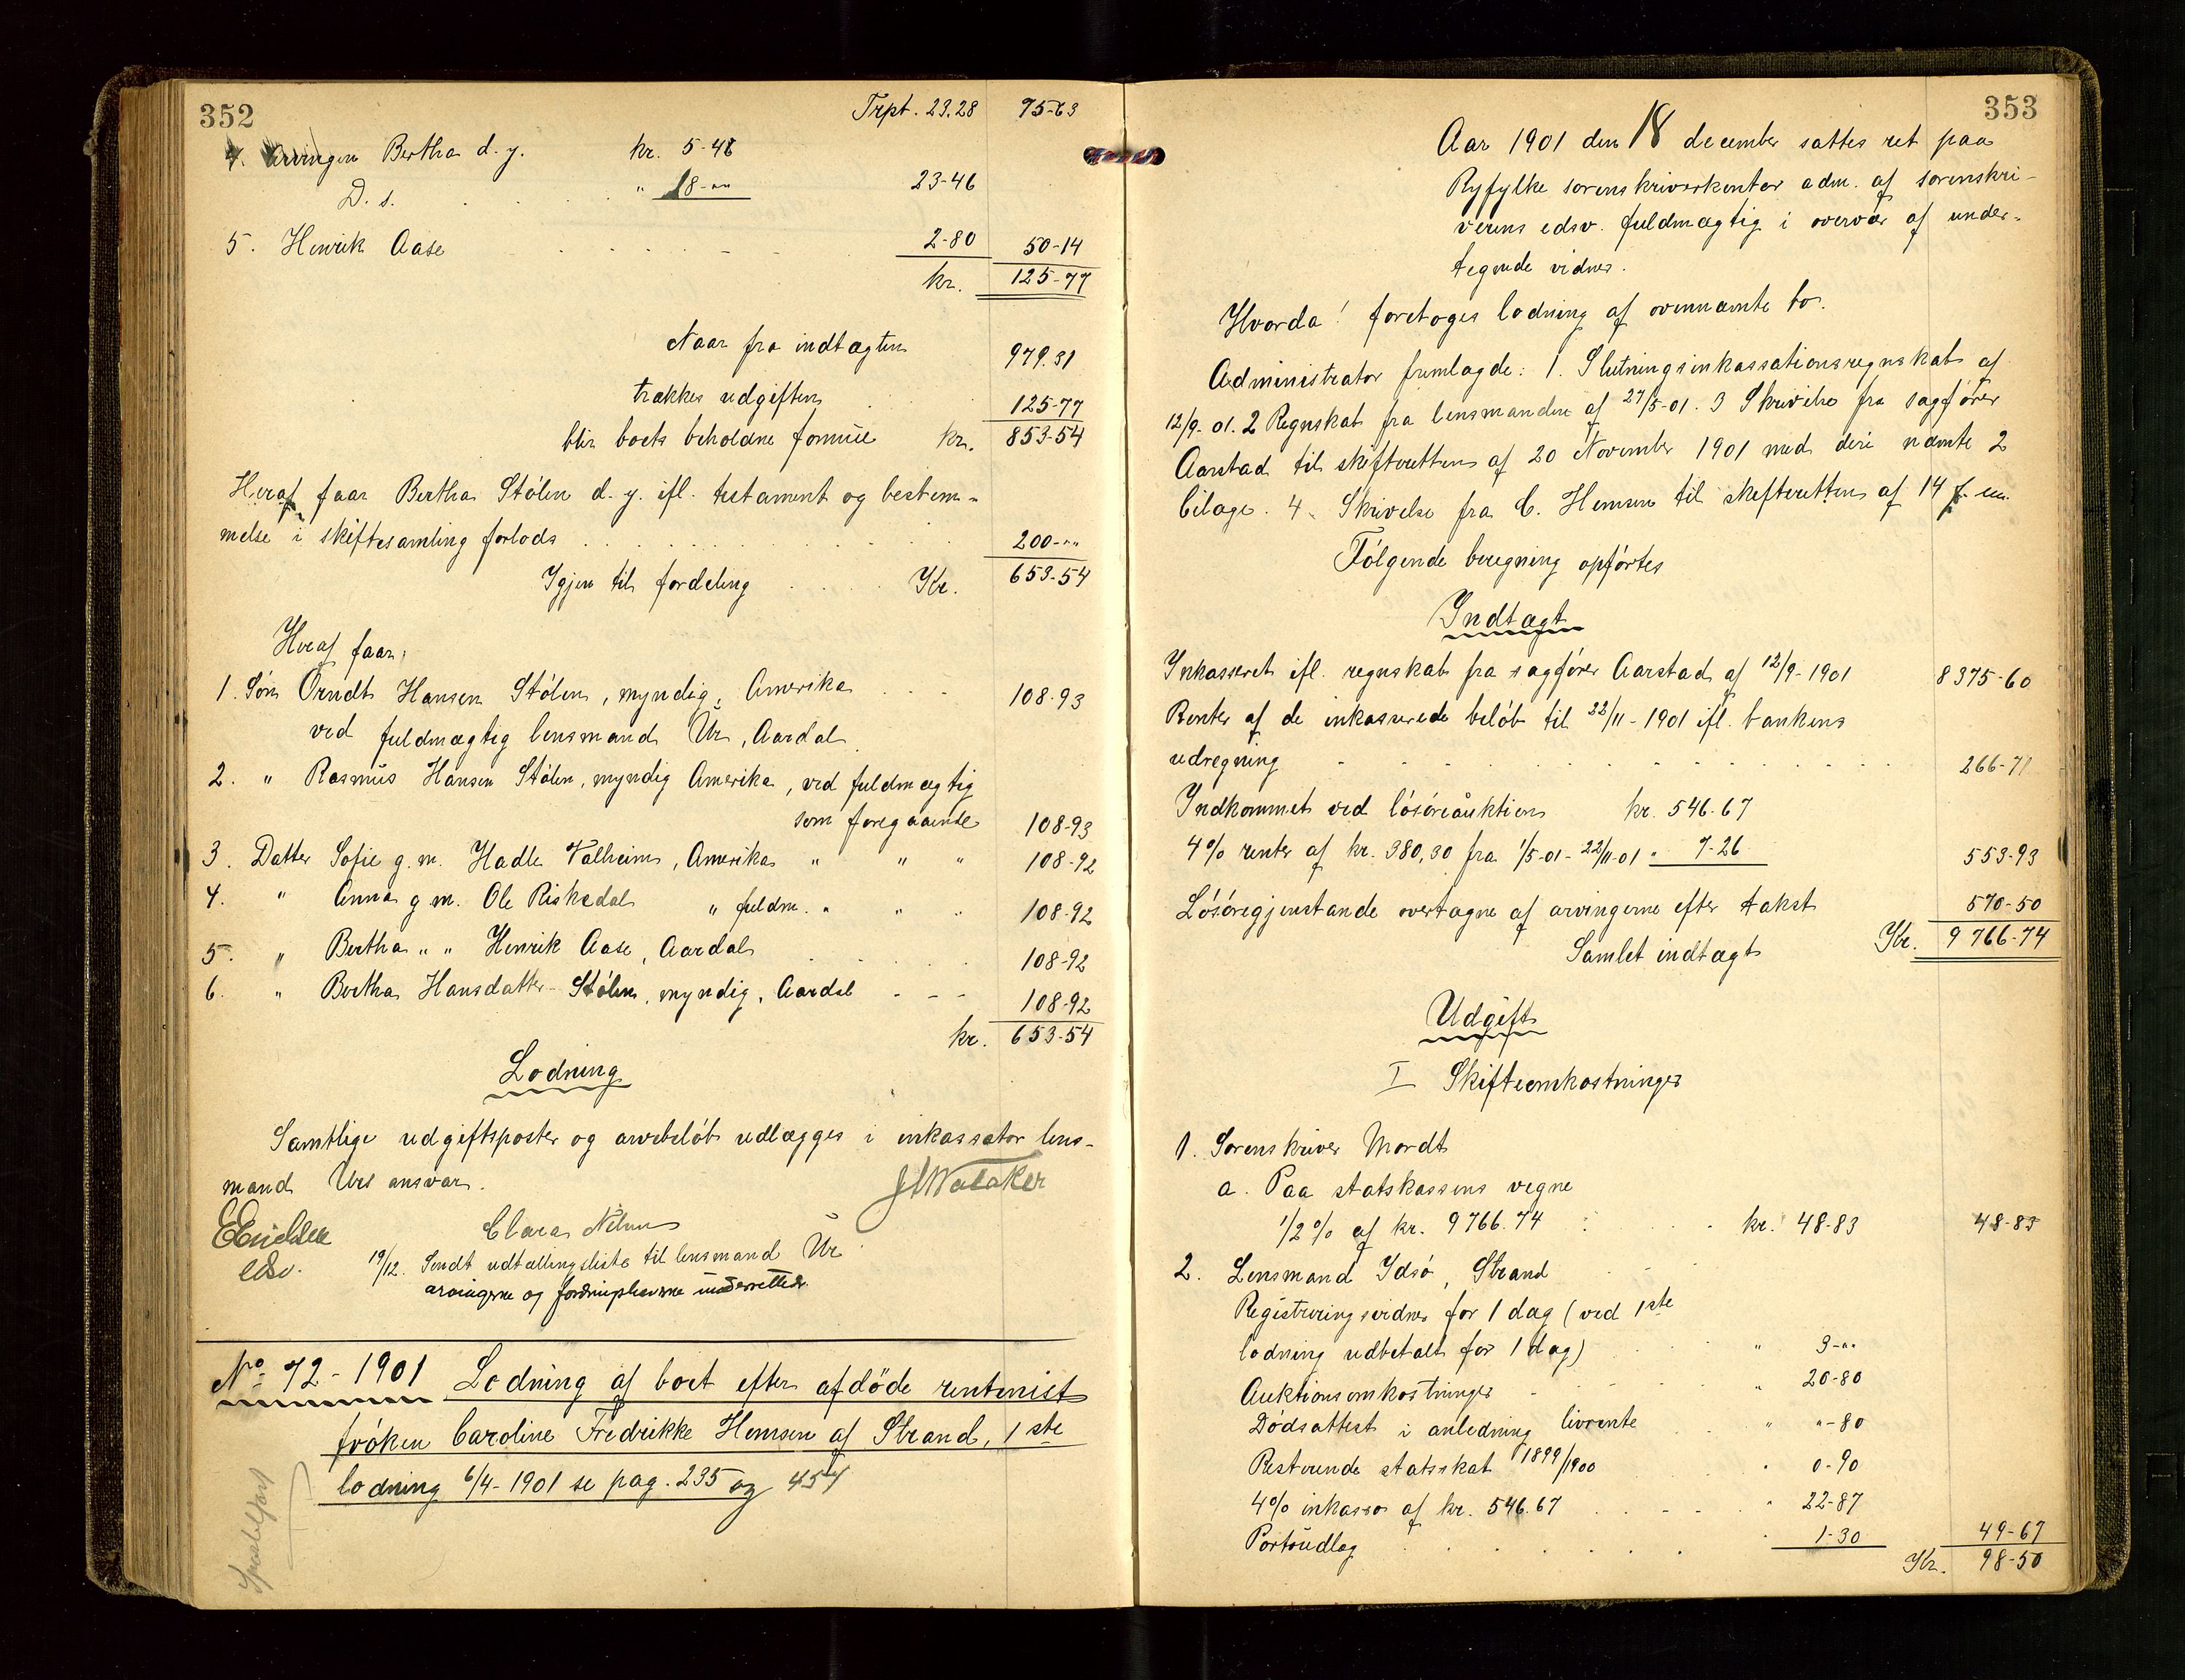 352
Trpt. 23.28 75-63
4. Arvingen Bertha d. y. kr. 5-46
D. s. " 18-"" 23-46
5. Henrik Aase 2-80 50-14
kr. 125-77
Naar fra indtægten 979.31
trækkes udgiften 125-77
blir boets beholdne formue kr. 853-54
Heraf faar Bertha Stølen d. y. ifl. testament og bestem-
melse i skiftesamling forlods 200-""
Igjen til fordeling Kr. 653-54
Heraf faar:
1. Søn Örndt Hansen Stølen, myndig, Amerika 108-93
ved fuldmægtig lensmand Ur, Aardal
2. " Rasmus Hansen Stølen, myndig Amerika, ved fuldmægtig
som foregaaende 108-93
3. Datter Sofie g. m. Hadle Valheim, Amerika " " " 108-92
4. " Anna g m. Ole Riskedal " fuldm. " " " 108-92
5. " Bertha " " Henrik Aase, Aardal 108-92
6. " Bertha Hansdatter Stølen, myndig, Aardal 108-92
kr. 653-54
Lodning
Samtlige udgiftsposter og arvebeløb udlægges i inkassator lens-
mand Urs ansvar.
Clara
edsv.
19/12. Sendt udtællingsliste til lensmand Ur
arvingerne og underrettede
No. 72-1901 Lodning af boet efter afdöde rentenist
frøken Caroline Fredrikke Hemsen af Strand, 1ste
lodning 6/4-1901 se pag. 235 og 454
353
Aar 1901 den 18 december sattes ret paa
Ryfylke sorenskriverkontor adm. af sorenskri-
verens edsv. fuldmægtig i overvær af under-
tegnede vidner.
Hvorda! foretoges lodning af ovennæmte bo.
Administrator fremlagde: 1. Slutningsinkassationsregnskab af
12/9-01. 2 Regnskab fra lensmanden af 27/5-01. 3 Skrivelse fra sagfører
Aarstad til skifteretten af 20 November 1901 med deri næmte 2
bilage. 4. Skrivelse fra C. Hemsen til skifteretten af 14 f. m.
Følgende beregning opførtes
Indtægt
Inkasseret ifl. regnskab fra sagfører Aarstad af 12/9-1901 8375-60
Renter af de inkasserede beløb til 22/11-1901 ifl. bankens
udregning 266-71
Indkommet ved løsøreauktion kr. 546-67
4% renter af kr. 380,30 fra 1/5-01-22/11-01 " 7-26 553-93
Løsøregjenstande overtagne af arvingerne efter takst 570-50
Samlet indtægt Kr. 9766-74
Udgift
I Skifteomkostninger
1. Sorenskriver Mordt
a. Paa statskassens vegne
1/2% af kr. 9766.74 kr. 48-83 48-83
2. Lensmand Idsø, Strand
Registreringsvidner for 1 dag (ved 1ste
lodning udbetalt for 1 dag) " 3-""
Auktionsomkostninger " 20-80
Dødsattest i anledning livrente " "-80
Resterende statsskat 1899/1900 " 0-90
4% inkasso af kr. 546.67 " 22-87
Portoudlæg " 1-30 49-67
Kr. 98-50